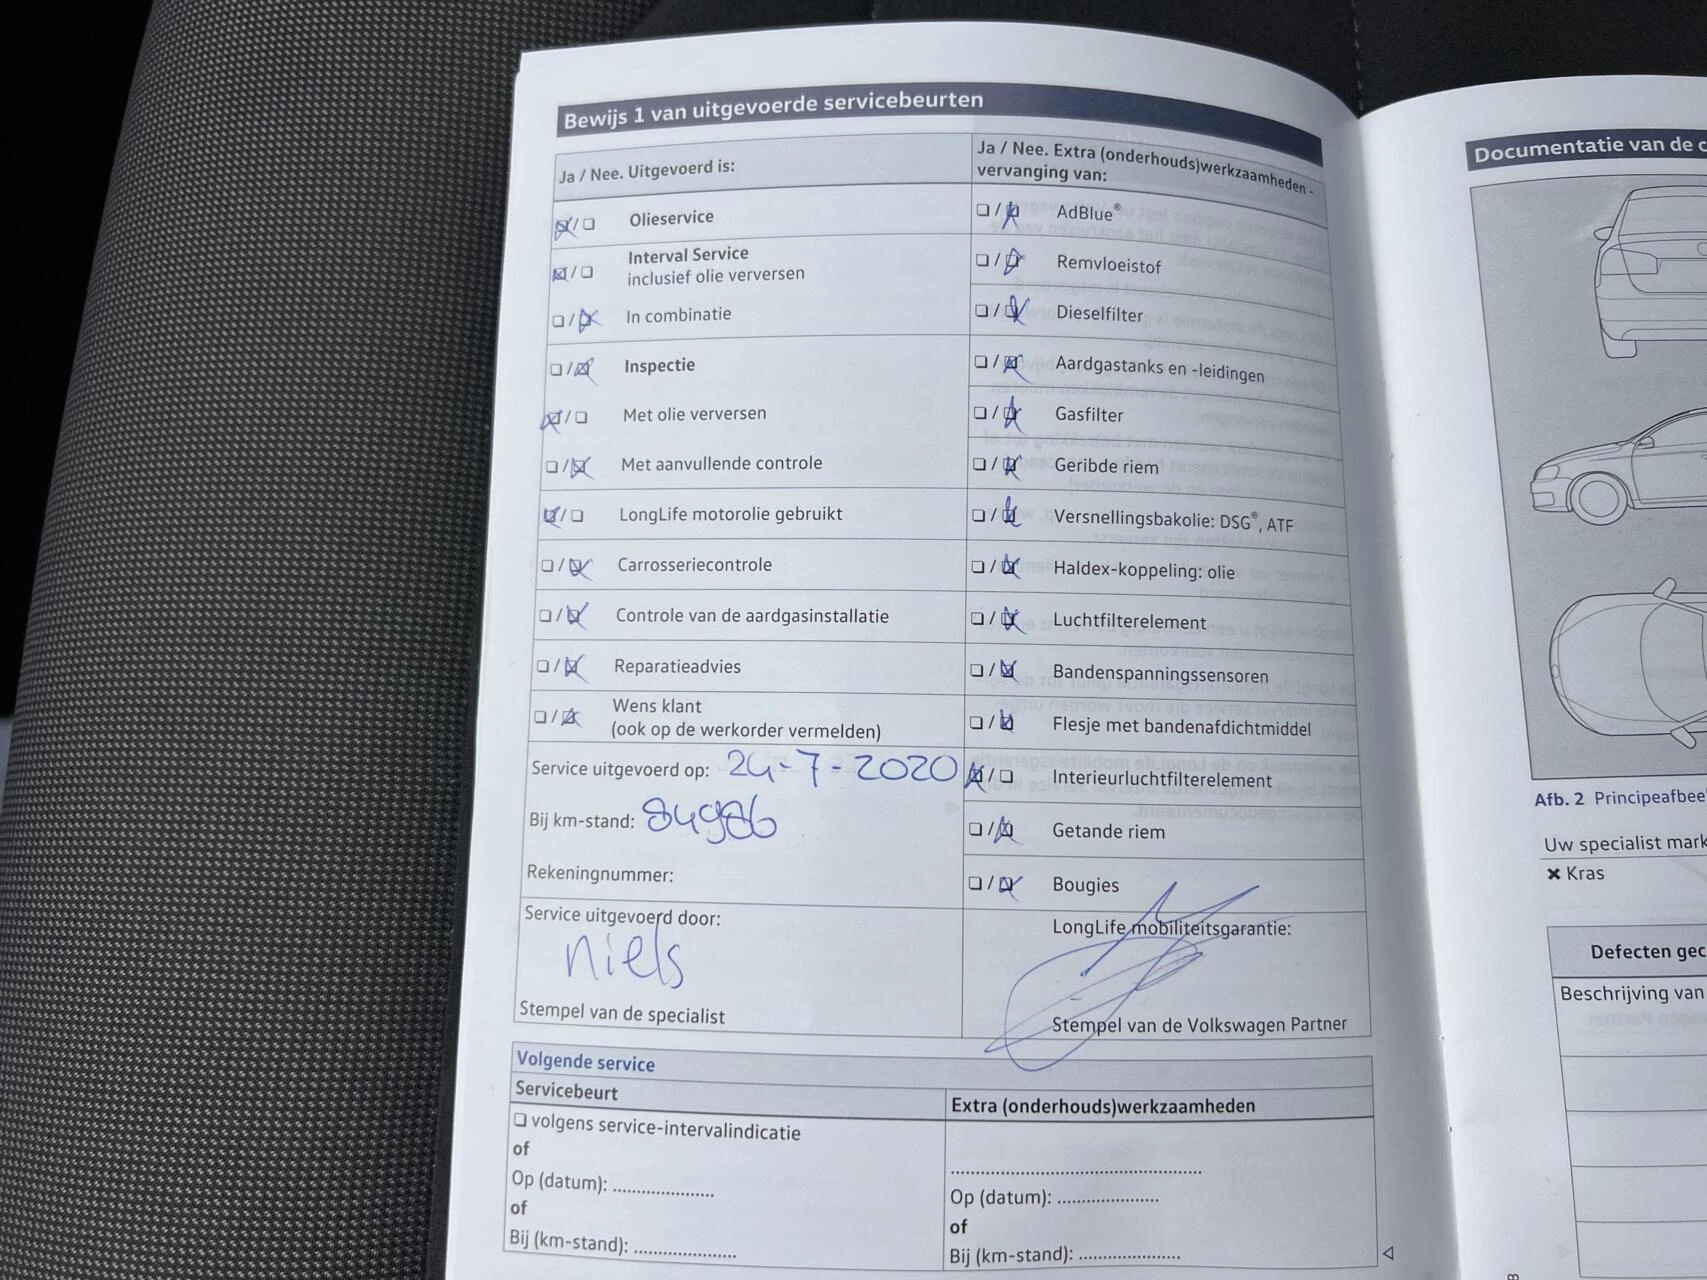 Bewijs 1 van uitgevoerde servicebeurten
Ja / Nee. Uitgevoerd is:
Olieservice
Interval Service
inclusief olie verversen
In combinatie
Inspectie
Met olie verversen
Met aanvullende controle
LongLife motorolie gebruikt
Carrosseriecontrole
Controle van de aardgasinstallatie
Reparatieadvies
Wens klant
(ook op de werkorder vermelden)
Service uitgevoerd op: 24-7-2020
Bij km-stand: 84986
Rekeningnummer:
Service uitgevoerd door:
niels
Stempel van de specialist
Ja / Nee. Extra (onderhouds)werkzaamheden -
vervanging van:
AdBlue®
Remvloeistof
Dieselfilter
Aardgastanks en -leidingen
Gasfilter
Geribde riem
Versnellingsbakolie: DSG®, ATF
Haldex-koppeling: olie
Luchtfilterelement
Bandenspanningssensoren
Flesje met bandenafdichtmiddel
Interieurluchtfilterelement
Getande riem
Bougies
LongLife mobiliteitsgarantie:
Stempel van de Volkswagen Partner
Volgende service
Servicebeurt
volgens service-intervalindicatie
of
Op (datum): .....................
of
Bij (km-stand): .....................
Extra (onderhouds)werkzaamheden
....................................................
Op (datum): .....................
of
Bij (km-stand): .....................
Documentatie van de c
Afb. 2 Principeafbee
Uw specialist mark
✖ Kras
Defecten gec
Beschrijving van